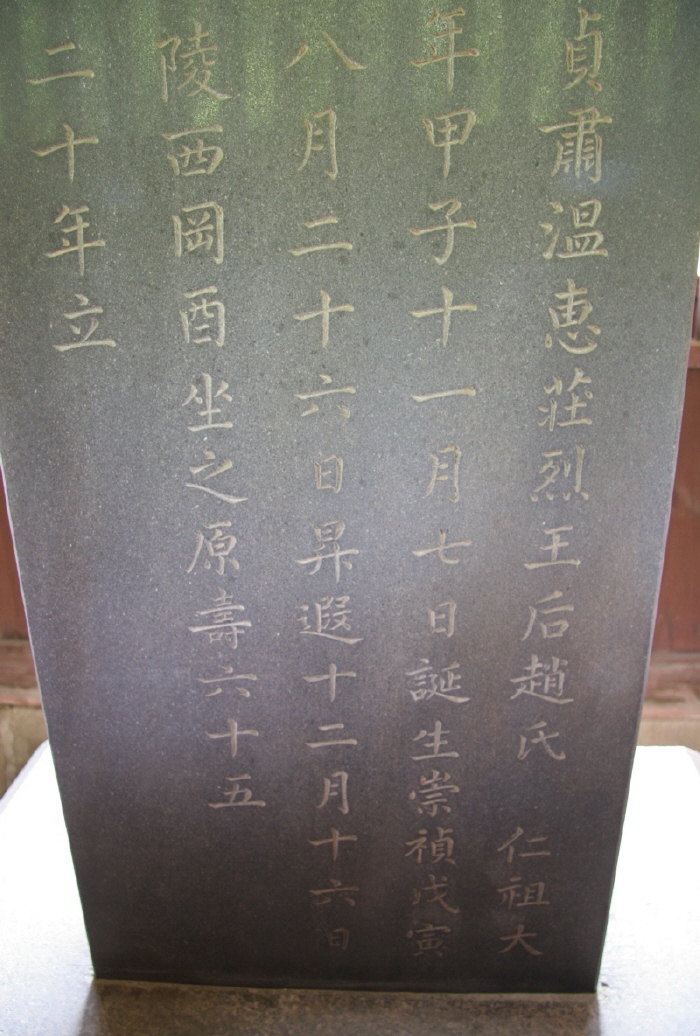 貞肅溫惠莊烈王后趙氏 仁祖大
年甲子十一月七日誕生崇禎戊寅
八月二十六日昇遐十二月十六日
陵西岡酉坐之原壽六十五
二十年立